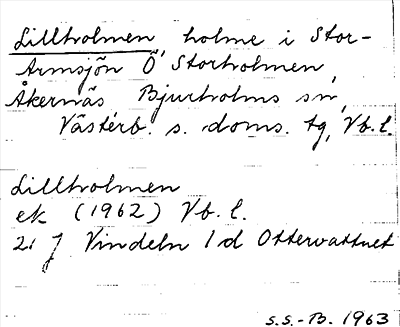 Lillholmen, holme i Stor-
Armsjön Ö Storholmen,
Åkernäs Bjurholms sn,
Västerb. s. doms. tg, Vb. l.
Lillholmen
ek (1962) Vb. l.
21 J Vindeln 1 d Ottervattnet
S.S.-B. 1963